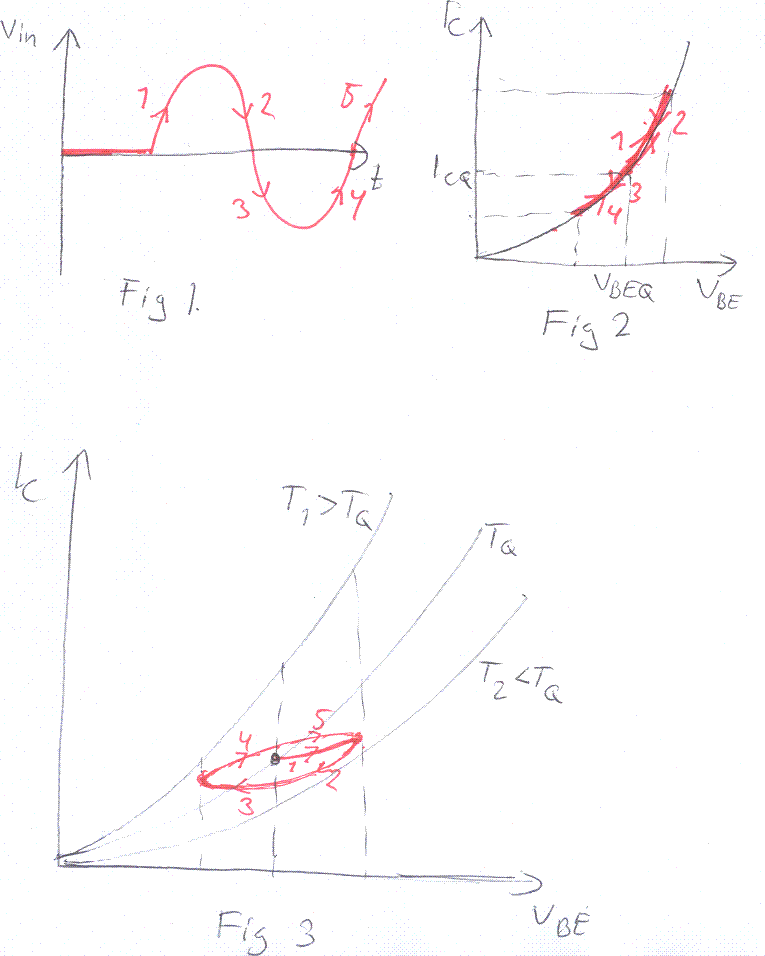 Vin
1
2
3
4
5
t
Fig 1.
IC
ICQ
1
2
3
4
VBEQ
VBE
Fig 2
IC
T1>TQ
TQ
T2<TQ
4
5
1
2
3
VBE
Fig 3